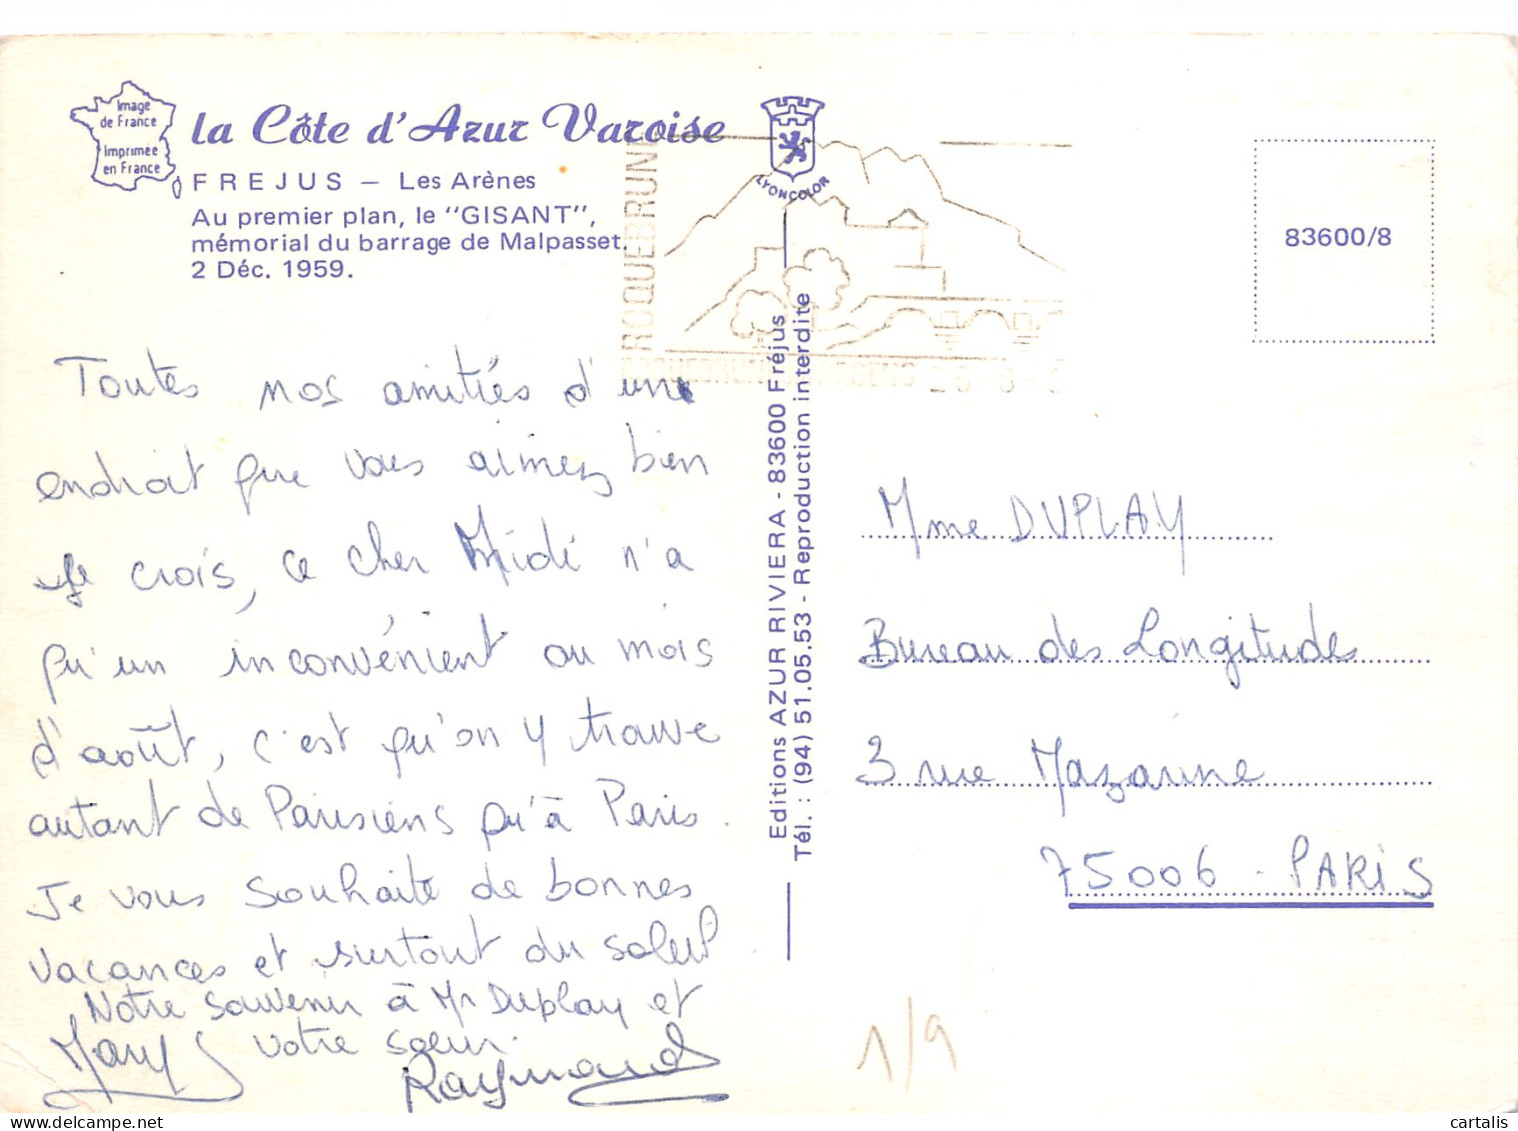 Image
de France
Imprimée
en France
la Côte d'Azur Varoise
FREJUS – Les Arènes
Au premier plan, le "GISANT",
mémorial du barrage de Malpasset.
2 Déc. 1959.
LYONCOLOR
ROQUEBRUNE
83600/8
Toutes nos amitiés d'un
endroit que vous aimez bien
je crois, ce cher Midi n'a
qu'un inconvénient au mois
d'août, c'est qu'on y trouve
autant de Parisiens qu'à Paris.
Je vous souhaite de bonnes
vacances et surtout du soleil
Notre souvenir à Mr Duplay et
votre soeur.
Raymond
Editions AZUR RIVIERA - 83600 Fréjus
Tél. : (94) 51.05.53 - Reproduction interdite
Mme DUPLAY
Bureau des Longitudes
3 rue Mazarine
75006 - PARIS
1/9
cartalis